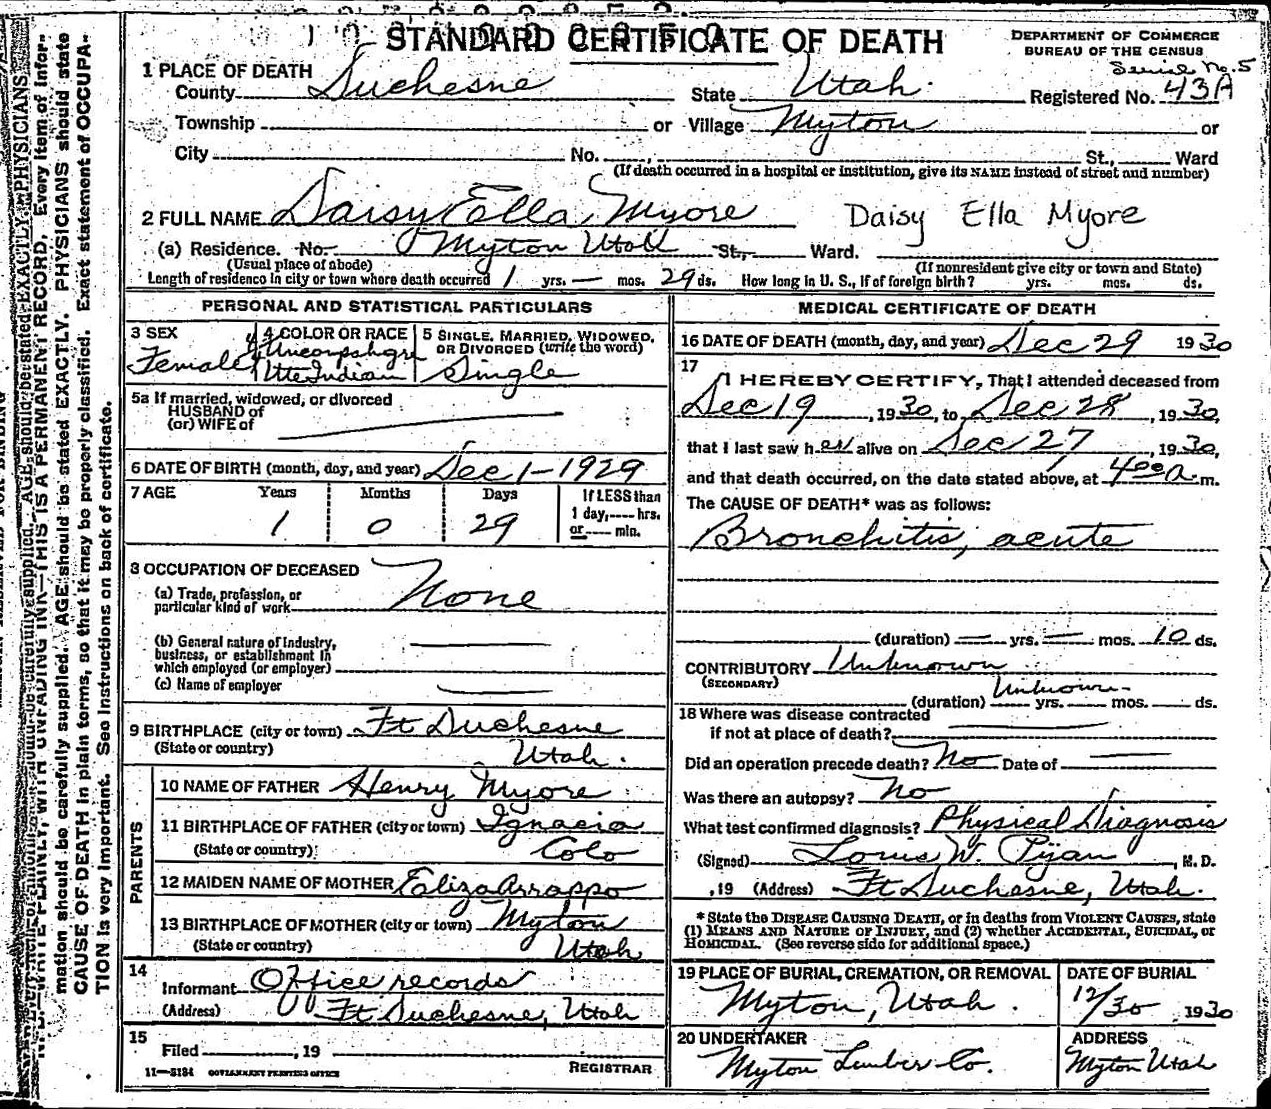 STANDARD CERTIFICATE OF DEATH
DEPARTMENT OF COMMERCE
BUREAU OF THE CENSUS
Serial No. 5
1 PLACE OF DEATH
County Duchesne State Utah. Registered No. 43A
Township or Village Myton or
City No. , St., Ward
(If death occurred in a hospital or institution, give its NAME instead of street and number)
2 FULL NAME Daisy Ella Myore Daisy Ella Myore
(a) Residence. No. Myton Utah St., Ward.
(Usual place of abode) (If nonresident give city or town and State)
Length of residence in city or town where death occurred 1 yrs. — mos. 29 ds. How long in U. S., if of foreign birth? yrs. mos. ds.
PERSONAL AND STATISTICAL PARTICULARS
3 SEX
Female
4 COLOR OR RACE
4/4 Uncompahgre
Ute Indian
5 SINGLE, MARRIED, WIDOWED,
OR DIVORCED (write the word)
Single
5a If married, widowed, or divorced
HUSBAND of
(or) WIFE of
6 DATE OF BIRTH (month, day, and year) Dec 1-1929
7 AGE Years Months Days If LESS than
1 day, hrs.
1 0 29 or min.
8 OCCUPATION OF DECEASED
(a) Trade, profession, or
particular kind of work None
(b) General nature of industry,
business, or establishment in
which employed (or employer)
(c) Name of employer
9 BIRTHPLACE (city or town) Ft Duchesne
(State or country) Utah.
PARENTS
10 NAME OF FATHER Henry Myore
11 BIRTHPLACE OF FATHER (city or town) Ignacio
(State or country) Colo
12 MAIDEN NAME OF MOTHER Eliza Arrappo
13 BIRTHPLACE OF MOTHER (city or town) Myton
(State or country) Utah
14
Informant Office records
(Address) Ft Duchesne, Utah
15
Filed , 19
REGISTRAR
11—3184 GOVERNMENT PRINTING OFFICE
MEDICAL CERTIFICATE OF DEATH
16 DATE OF DEATH (month, day, and year) Dec 29 1930
17
I HEREBY CERTIFY, That I attended deceased from
Dec 19, 1930, to Dec 28, 1930,
that I last saw her alive on Dec 27, 1930,
and that death occurred, on the date stated above, at 4 00 a. m.
The CAUSE OF DEATH* was as follows:
Bronchitis, acute
(duration) — yrs. — mos. 10 ds.
CONTRIBUTORY Unknown
(SECONDARY)
(duration) Unknown yrs. mos. ds.
18 Where was disease contracted
if not at place of death?
Did an operation precede death? No Date of
Was there an autopsy? No
What test confirmed diagnosis? Physical Diagnosis
(Signed) Louis W. Pijan, M. D.
, 19 (Address) Ft Duchesne, Utah.
* State the DISEASE CAUSING DEATH, or in deaths from VIOLENT CAUSES, state
(1) MEANS AND NATURE OF INJURY, and (2) whether ACCIDENTAL, SUICIDAL, or
HOMICIDAL. (See reverse side for additional space.)
19 PLACE OF BURIAL, CREMATION, OR REMOVAL
Myton, Utah.
DATE OF BURIAL
12/30, 1930
20 UNDERTAKER
Myton Lumber Co.
ADDRESS
Myton Utah
WRITE PLAINLY, WITH UNFADING INK—THIS IS A PERMANENT RECORD. Every item of infor-
mation should be carefully supplied. AGE should be stated EXACTLY. PHYSICIANS should state
CAUSE OF DEATH in plain terms, so that it may be properly classified. Exact statement of OCCUPA-
TION is very important. See instructions on back of certificate.